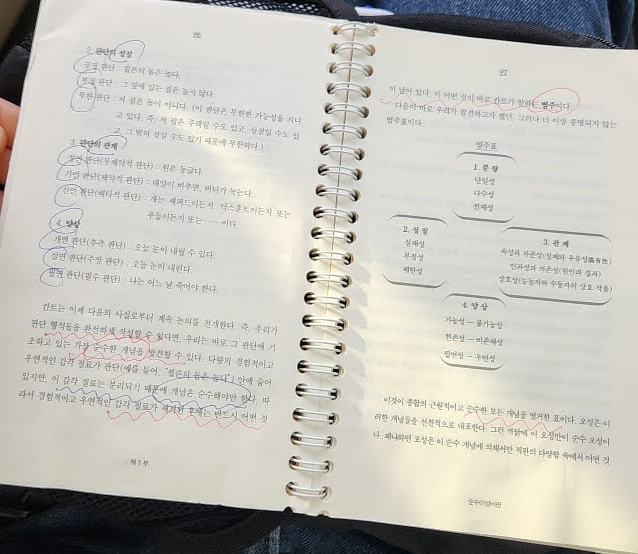 96
2. 판단의 성질
긍정 판단 : 쾰른의 돔은 높다.
부정 판단 : 그 옆에 있는 집은 높지 않다.
무한 판단 : 저 집은 돔이 아니다. (이 판단은 무한한 가능성을 지니
고 있다. 즉, 저 집은 주택일 수도 있고, 상점일 수도 있
고, 그 밖의 것일 수도 있기 때문에 무한하다.)
3. 판단의 관계
정언 판단(무제약적 판단) : 원은 둥글다
가언 판단(제약적 판단) : 태양이 비추면, 버터가 녹는다.
선언 판단(배타적 판단) : 개는 셰퍼드이든지, 닥스훈트이든지 또는
푸들이든지 또는 ……이다.
4. 양상
개연 판단(추측 판단) : 오늘 눈이 내릴 수 있다.
실연 판단(주장 판단) : 오늘 눈이 내린다.
필연 판단(필수 판단) : 나는 어느 날 죽어야 한다.
칸트는 이제 다음의 사실로부터 계속 논의를 전개한다. 즉, 우리가
판단 형식들을 완전하게 작성할 수 있다면, 우리는 바로 그 판단에 기
초하고 있는 가장 순수한 개념을 발견할 수 있다. 다량의 경험적이고
우연적인 감각 질료가 판단(예를 들어, "쾰른의 돔은 높다") 안에 숨어
있지만, 이 감각 질료는 분리되기 때문에 개념은 순수해야만 한다. 따
라서 경험적이고 우연적인 감각 질료가 제거된 후에는 반드시 어떤 것
제1부
97
이 남아 있다. 이 어떤 것이 바로 칸트가 말하는 범주이다
다음이 바로 우리가 발견하고자 했던, 그러나 더 이상 증명되지 않는
범주표이다.
범주표
1. 분량
단일성
다수성
전체성
2. 성질
실재성
부정성
제한성
3. 관계
속성과 자존성(실체와 우유성偶有性)
인과성과 의존성(원인과 결과)
상호성(능동자와 수동자의 상호 작용)
4. 양상
가능성 — 불가능성
현존성 — 비존재성
필연성 — 우연성
이것이 종합의 근원적이고 순수한 모든 개념을 열거한 표이다. 오성은 이
러한 개념들을 선천적으로 내포한다. 그런 까닭에 이 오성만이 순수 오성이
다. 왜냐하면 오성은 이 순수 개념에 의해서만 직관의 다양함 속에서 어떤 것
순수이성비판